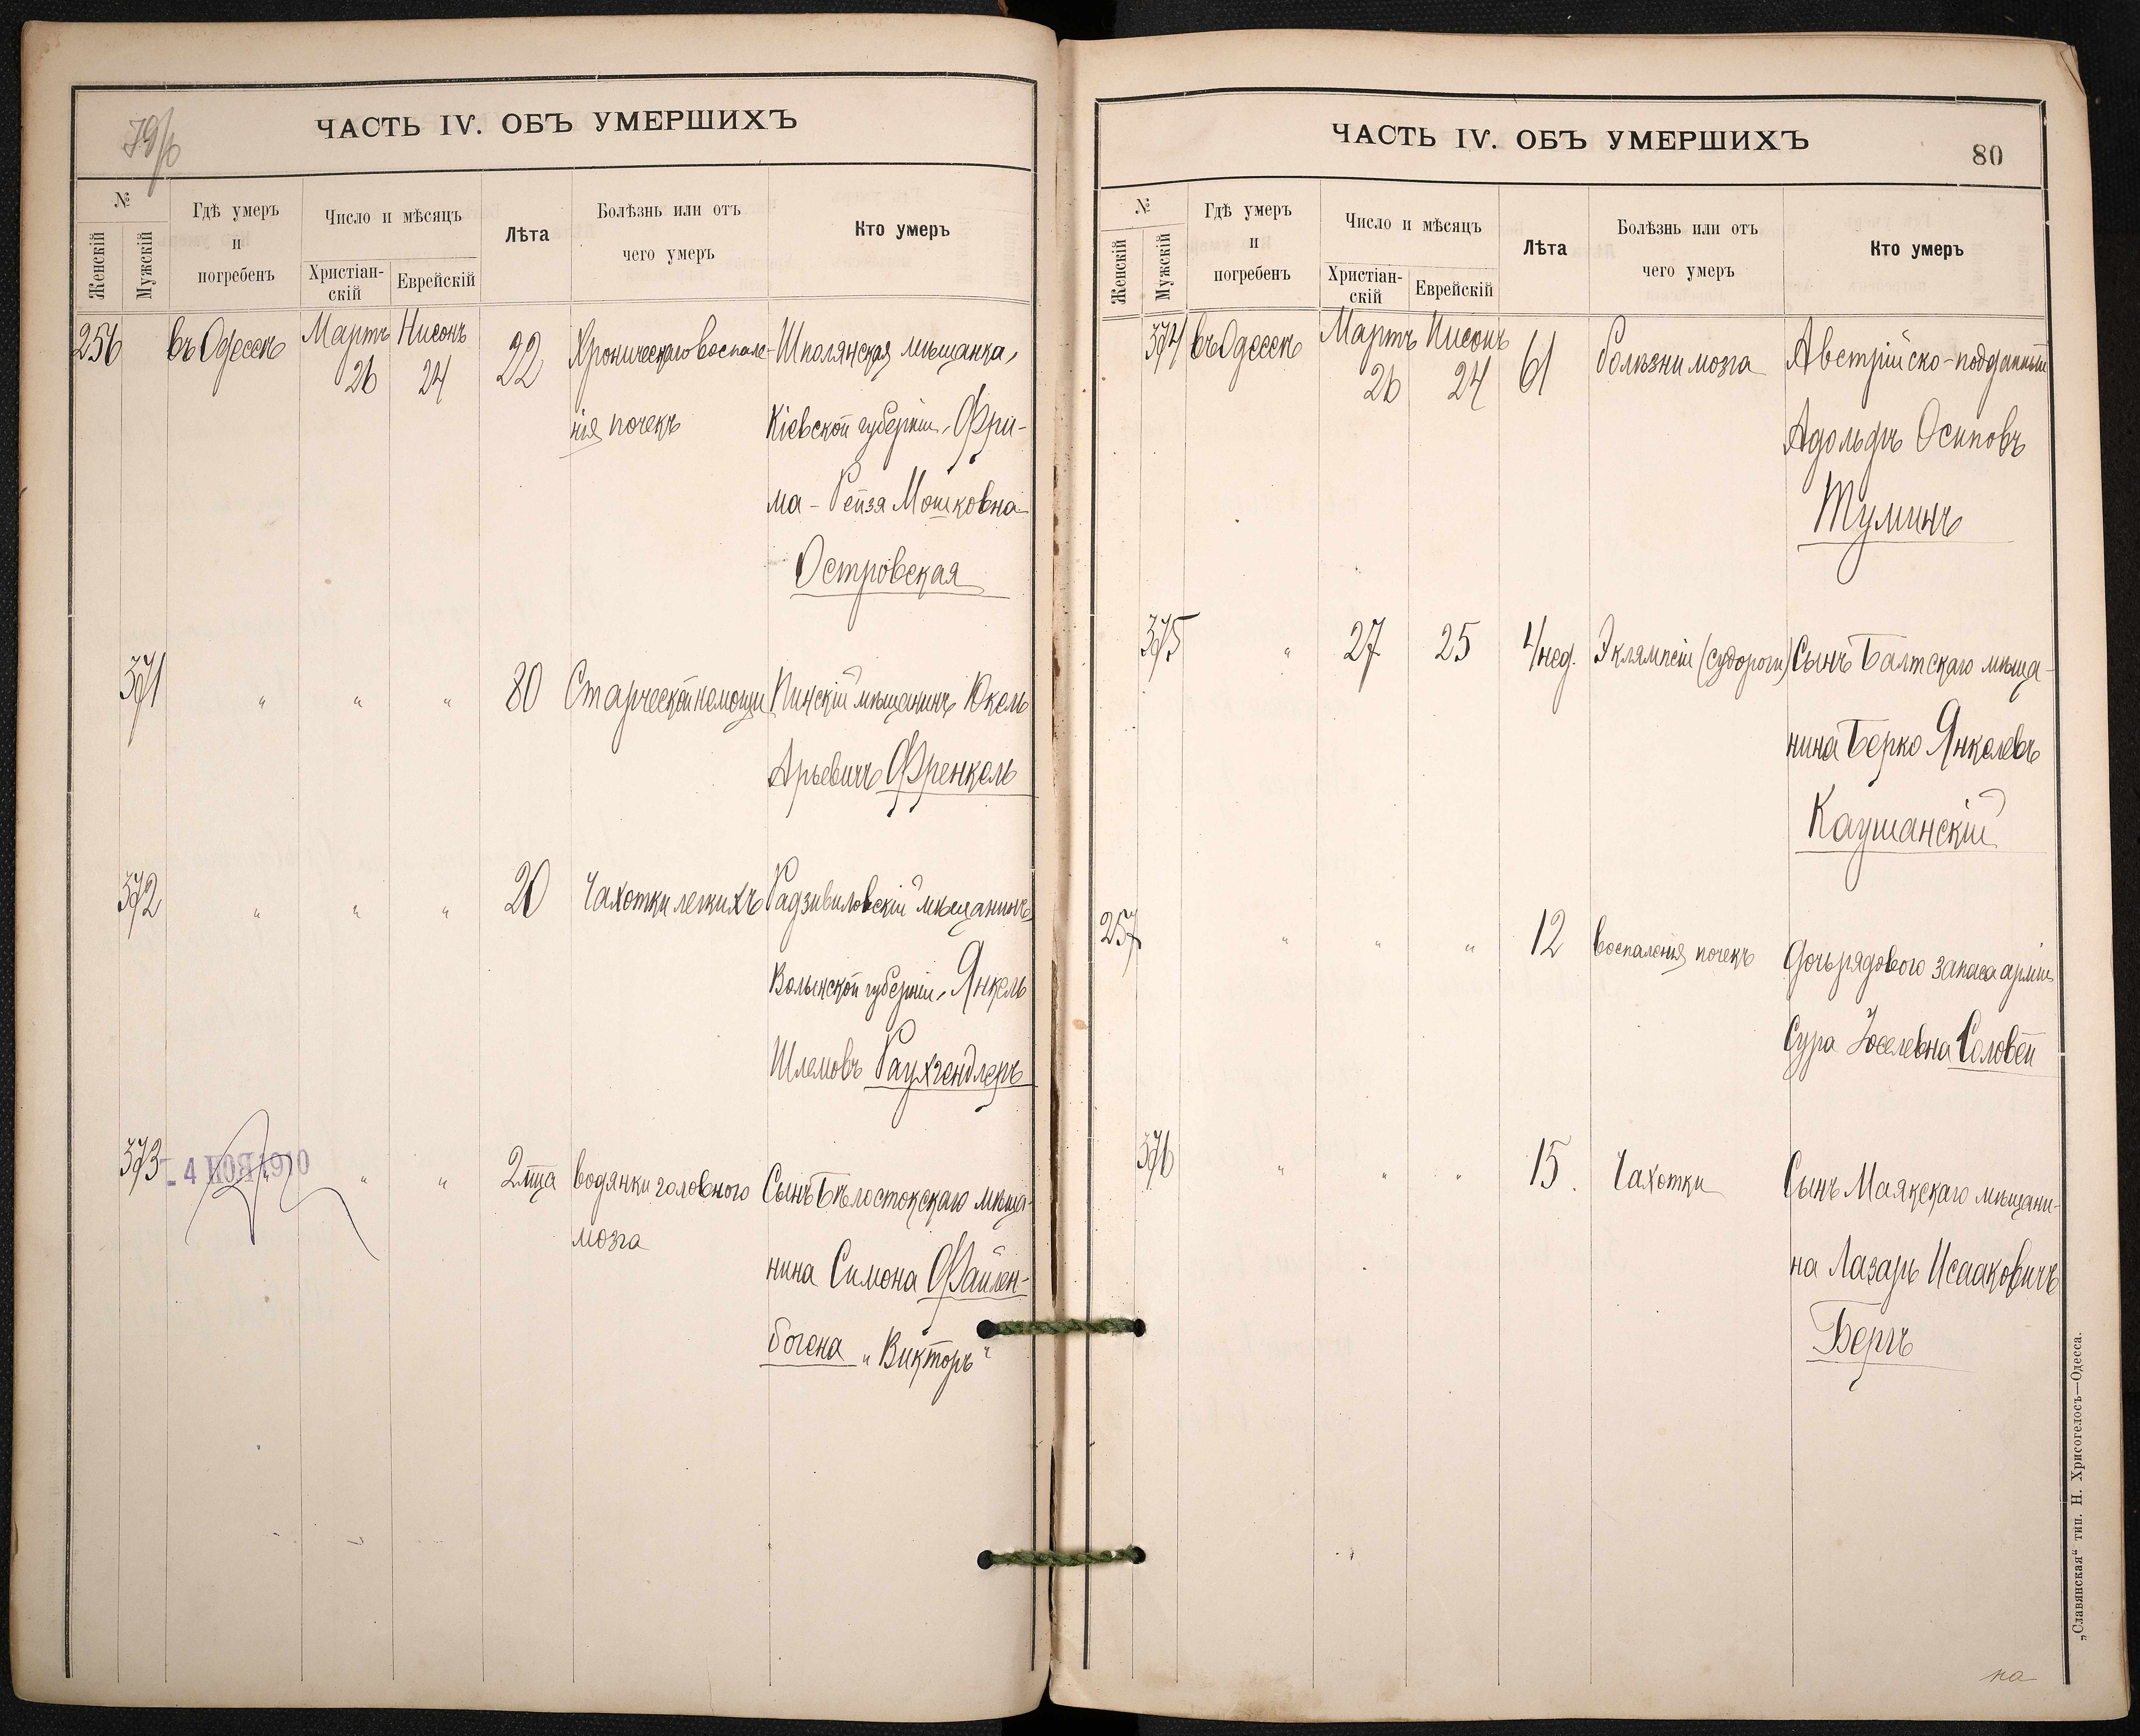 79/б
ЧАСТЬ IV. ОБЪ УМЕРШИХЪ
№
Женскій
Мужскій
Гдѣ умеръ
и
погребенъ
Число и мѣсяцъ
Христіан-
скій
Еврейскій
Лѣта
Болѣзнь или отъ
чего умеръ
Кто умеръ
256 въ Одессѣ Мартъ 26 Нисонъ 24 22 Хроническаго воспале- Шполянская мѣщанка,
нія почекъ Кіевской губерніи, Фри-
ма-Рейзя Мошковна
Островская
371 " " " 80 Старческой немощи Пинскій мѣщанинъ Юкель
Арьевичъ Френкель
372 " " " 20 Чахотки легкихъ Радзивиловскій мѣщанинъ,
Волынской губерніи, Янкель
Шлемовъ Раухгендлеръ
373 - 4 НОЯ 1910 " " 2 мца водянки головного Сынъ Бѣлостокскаго мѣща-
мозга нина Симона Файлен-
богена „Викторъ“
ЧАСТЬ IV. ОБЪ УМЕРШИХЪ
80
№
Женскій
Мужскій
Гдѣ умеръ
и
погребенъ
Число и мѣсяцъ
Христіан-
скій
Еврейскій
Лѣта
Болѣзнь или отъ
чего умеръ
Кто умеръ
374 въ Одессѣ Мартъ 26 Нисонъ 24 61 болѣзни мозга Австрійско-подданный
Адольфъ Осиповъ
Туминъ
375 " 27 25 4 нед. Эклямпсіи (судороги) Сынъ Балтскаго мѣща-
нина Берко Янкелевъ
Каушанскій
257 " " " 12 воспаленія почекъ Дочь рядового запаса арміи
Сура Іоселевна Соловей
376 " " " 15. Чахотки Сынъ Маякскаго мѣщани-
на Лазарь Исааковичъ
Бергъ
на
„Славянская“ тип. Н. Хрисогелосъ—Одесса.